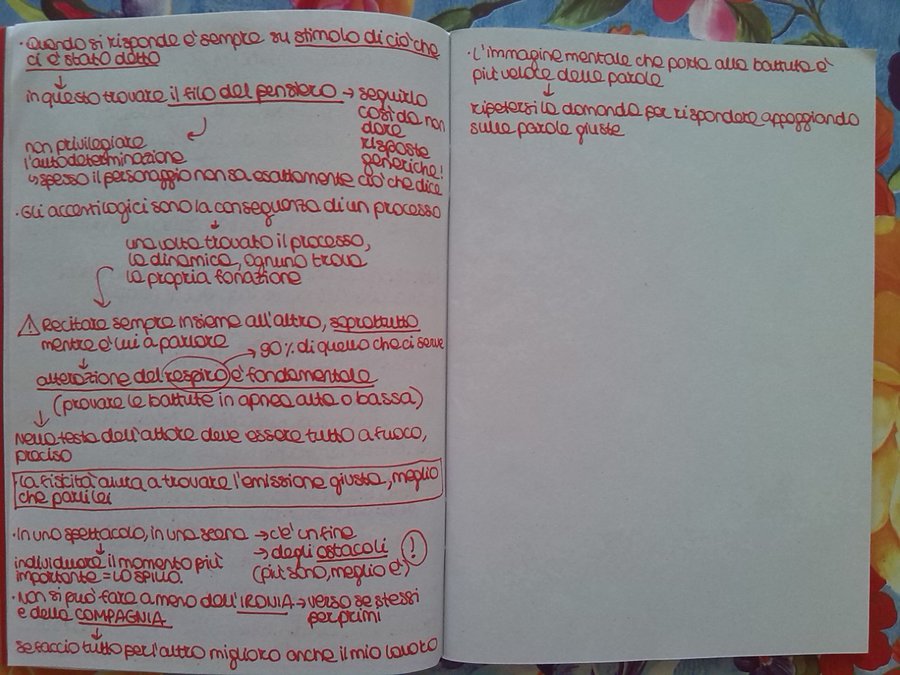 · Quando si risponde è sempre su stimolo di ciò che
ci è stato detto
↓
in questo trovare il filo del pensiero → seguirlo
così da non
dare
risposte
generiche!
non privilegiare
l'autodeterminazione
↳ spesso il personaggio non sa esattamente ciò che dice
· Gli accenti logici sono la conseguenza di un processo
↓
una volta trovato il processo,
la dinamica, ognuno trova
la propria fonazione
⚠ Recitare sempre insieme all'altro, soprattutto
mentre è lui a parlare
→ 90% di quello che ci serve
alterazione del respiro è fondamentale
(provare le battute in apnea alta o bassa)
↓
Nella testa dell'attore deve essere tutto a fuoco,
preciso
La fisicità aiuta a trovare l'emissione giusta, meglio
che parli lei
· In uno spettacolo, in una scena → c'è un fine
→ degli ostacoli (!)
(più sono, meglio è)
individuare il momento più
importante = LO SPILLO.
· Non si può fare a meno dell'IRONIA → verso se stessi
per primi
e della COMPAGNIA
↓
se faccio tutto per l'altro miglioro anche il mio lavoro
· L'immagine mentale che porta alla battuta è
più veloce delle parole
↓
ripetersi la domanda per rispondere appoggiando
sulle parole giuste